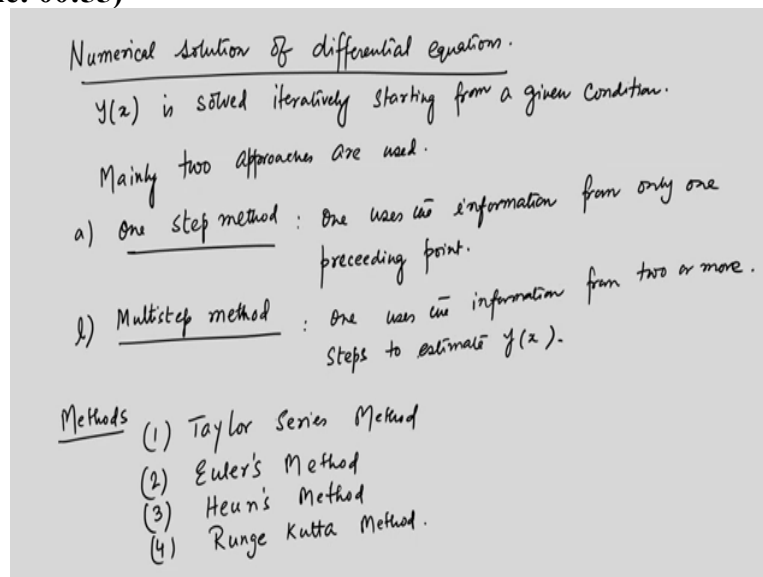 Numerical solution of differential equations.
y(x) is solved iteratively starting from a given condition.
Mainly two approaches are used.
a) One step method : One uses the information from only one
preceeding point.
b) Multistep method : One uses the information from two or more.
Steps to estimate y(x).
Methods (1) Taylor Series Method
(2) Euler's Method
(3) Heun's Method
(4) Runge Kutta Method.